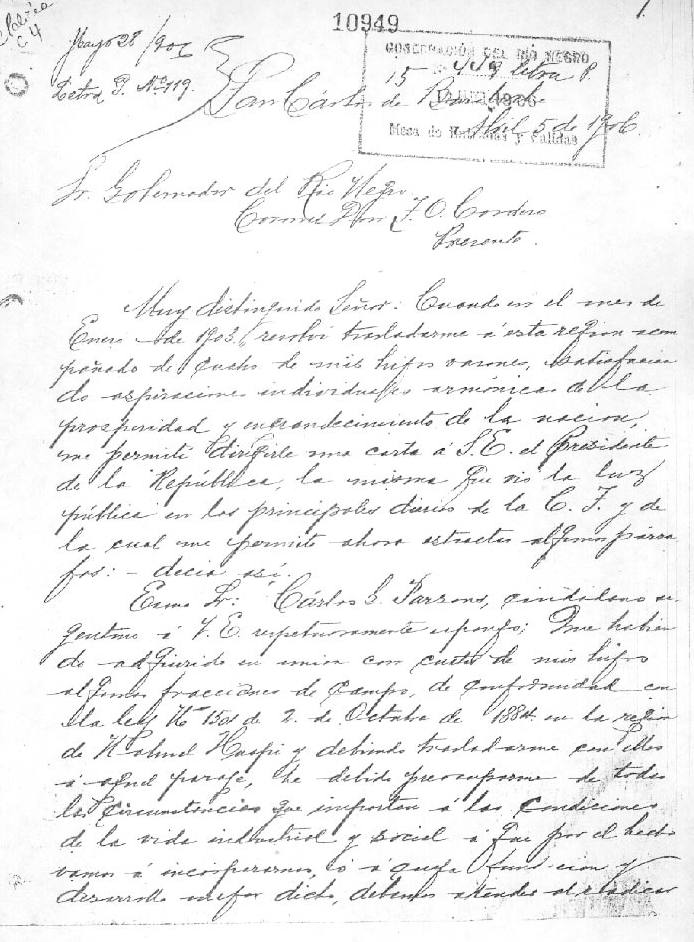 10949
1
Mayo 28/906
Letra P. Nº 119.
GOBERNACIÓN DEL RÍO NEGRO
119 letra P.
15
1906
Mesa de Entradas y Salidas
San Cárlos de Bariloche
Abril 5 de 1906.
Sr. Gobernador del Rio Negro
Coronel Don F. O. Cordero
Presente.
Muy distinguido Señor: Cuando en el mes de
Enero de 1903, resolví trasladarme á esta region acom
pañado de cuatro de mis hijos varones, satisfacien
do aspiraciones individuales armónicas de la
prosperidad y engrandecimiento de la nacion,
me permití dirigirle una carta á S. E. el Presidente
de la República, la misma que vió la luz
pública en los principales diarios de la C. F. y de
la cual me permito ahora estractar algunos párra
fos: - decia así.
Exmo Sr: Cárlos S. Parsons, ciudadano ar
gentino á V. E. respetuosamente espongo; Que habien
do adquirido en union con cuatro de mis hijos
algunas fracciones de campo, de conformidad con
la ley Nº 1501 de 2. de Octubre de 1884. en la region
de Nahuel Huapí y debiendo trasladarme con ellos
á aquel paraje, he debido preocuparme de todas
las circunstancias que importan á las condiciones
de la vida industrial y social á que por el hecho
vamos á incorporarnos, ó á cuya fundacion y
desarrollo mejor dicho, debemos atender al radicar